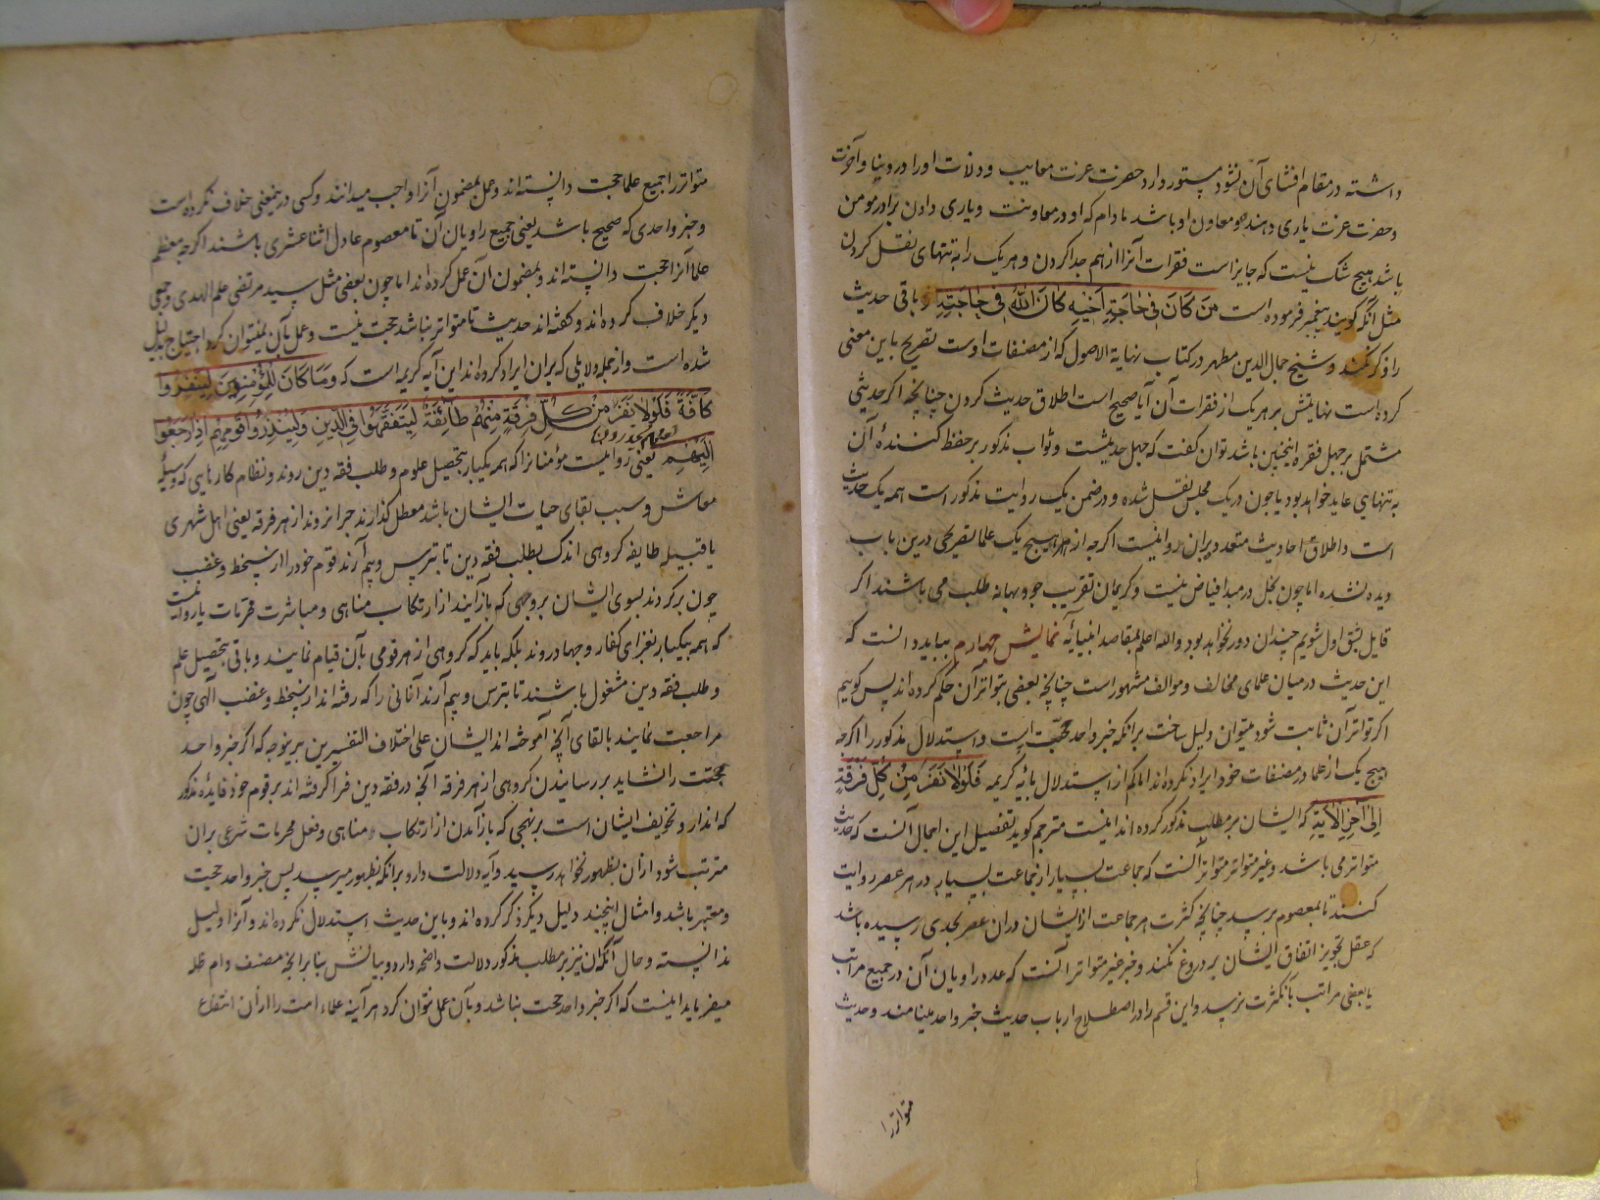 داشته در مقام افشای آن نشود مستور دارد حضرت عزت معایب و دلات او را در دنیا و آخرت
و حضرت عزت یاری دهنده و معاون او باشد مادام که او در معاونت و یاری دادن برادر مومن
باشد هیچ شک نیست که جایز است فقرات آنرا از هم جدا کردن و هر یک را به تنهای نقل کردن
مثل آنکه گویند پیغمبر فرموده است مَن كَانَ فِي حَاجَةِ أَخِيهِ كَانَ اللَّهُ فِي حَاجَتِهِ و باقی حدیث
را ذکر نکنند و شیخ جمال الدین مطهر در کتاب نهایة الاصول که از مصنفات اوست تصریح باین معنی
کرده است نهایتش بر هر یک از فقرات آن آیا صحیح است اطلاق حدیث کردن چنانچه اگر حدیثی
مشتمل بر چهل فقره اینچنین باشد توان گفت که چهل حدیثست و ثواب مذکور بر حفظ کننده آن
به تنهایی عاید خواهد بود یا چون در یک مجلس نقل شده و در ضمن یک روایت مذکور است همه یک حدیث
است و اطلاق احادیث متعدد بر آن روا نیست اگر چه از هیچ یک علما تصریحی درین باب
دیده نشده اما چون بخل در مبدا فیاض نیست و کریمان تقریب جو و بهانه طلب می باشند اگر
قایل بشق اول شویم چندان دور نخواهد بود والله اعلم بمقاصد انبیائه نمایش چهارم بباید دانست که
این حدیث در میان علمای مخالف و موالف مشهور است چنانچه بعضی بتواتر آن حکم کرده اند پس گوییم
اگر تواتر آن ثابت شود میتوان دلیل ساخت بر آنکه خبر واحد حجّت است و استدلال مذکور را اگر چه
هیچ یک از علما در مصنفات خود ایراد نکرده اند اما کم از استدلال بآیه کریمه فَلَوْلا نَفَرَ مِنْ كُلِّ فِرْقَةٍ
إِلَى آخِرِ الآيَةِ که ایشان بر مطلب مذکور کرده اند نیست مترجم گوید تفصیل این اجمال آنست که حدیث
متواتر می باشد و غیر متواتر متواتر آنست که جماعت بسیار از جماعت بسیار در هر عصر روایت
کنند تا بمعصوم برسد چنانچه کثرت هر جماعت از ایشان در ان عصر بحدی رسیده باشد
که عقل تجویز اتفاق ایشان بر دروغ نکند و خبر غیر متواتر آنست که عدد راویان آن در جمیع مراتب
یا بعضی مراتب بآن کثرت نرسد و این قسم را در اصطلاح ارباب حدیث خبر واحد مینامند و حدیث
متواتر را
متواتر را جمیع علما حجت دانسته اند و عمل بمضمون آنرا واجب میدانند و کسی در ینمعنی خلاف نکرده است
و خبر واحدی که صحیح باشد یعنی جمیع راویان آن تا معصوم عادل اثنا عشری باشند اگر چه معظم
علما آنرا حجت دانسته اند و بمضمون آن عمل کرده اند اما چون بعضی مثل سید مرتضی علم الهدی و جمعی
دیگر خلاف کرده اند و گفته اند حدیث تا متواتر نباشد حجت نیست و عمل بآن نمیتوان کرد احتیاج بدلیل
شده است و از جمله دلایلی که بر ان ایراد کرده اند این آیه کریمه است که وَمَا كَانَ الْمُؤْمِنُونَ لِيَنْفِرُوا
كَافَّةً فَلَوْلا نَفَرَ مِنْ كُلِّ فِرْقَةٍ مِنْهُمْ طَائِفَةٌ لِيَتَفَقَّهُوا فِي الدِّينِ وَلِيُنْذِرُوا قَوْمَهُمْ إِذَا رَجَعُوا
إِلَيْهِمْ لعلهم يحذرون یعنی روا نیست مؤمنانرا که همه یکبار بتحصیل علوم و طلب فقه دین روند و نظام کارهایی که وسیلهٔ
معاش و سبب بقای حیات ایشان باشد معطل گذارند چرا نروند از هر فرقه یعنی اهل شهری
یا قبیله طایفه گروهی اندک بطلب فقه دین تا بترس و بیم آرند قوم خود را از سخط و غضب
چون برگردند بسوی ایشان بروجهی که باز آیند از ارتکاب مناهی و مباشرت محرمات یا روا نیست
که همه بیکبار بغزای کفار و جهاد روند بلکه باید که گروهی از هر قومی بآن قیام نمایند و باقی بتحصیل علم
و طلب فقه دین مشغول باشند تا بترس و بیم آرند آنانی را که رفته اند از سخط و غضب الهی چون
مراجعت نمایند بالقای آنچه آموخته اند ایشان علی اختلاف التفسیرین بر ینوجه که اگر خبر واحد
حجّت را نشاید بر رسانیدن گروهی از هر فرقه آنچه در فقه دین فرا گرفته اند بر قوم خود فایدهٔ مذکور
که انذار و تخویف ایشان است بر نهجی که باز آمدن از ارتکاب مناهی و فعل محرمات شرعی بران
مترتب شود از ان بظهور نخواهد رسید و آیه دلالت دارد بر آنکه بظهور میرسد پس خبر واحد حجت
و معتبر باشد و امثال اینچند دلیل دیگر ذکر کرده اند و باین حدیث استدلال نکرده اند و آنرا دلیل
ندانسته و حال آنکه آن نیز بر مطلب مذکور دلالت واضحه دارد و بیانش بنا برانچه مصنف دام ظله
میفرماید اینست که اگر خبر واحد حجت نباشد و بآن عمل نتوان کرد هر آینه علماء امت را از ان انتفاع